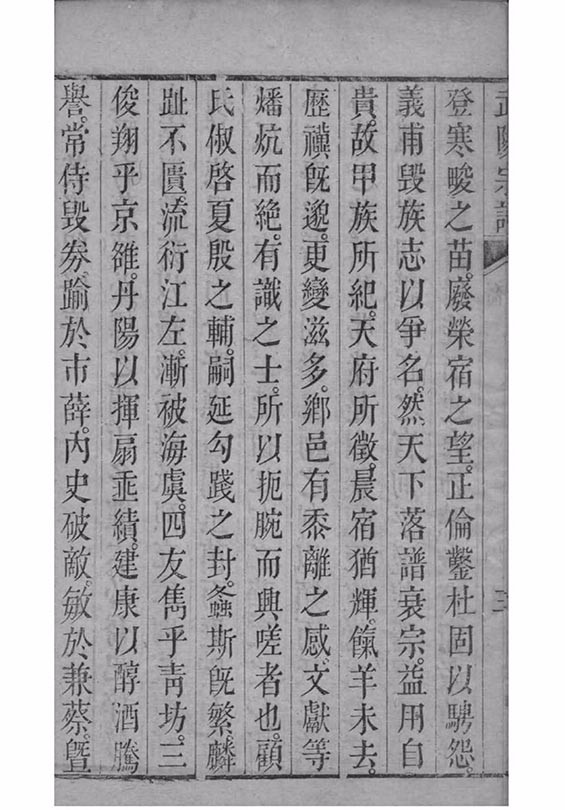 武陽宗譜
三
登寒畯之苗。廢榮宿之望。正倫鑿杜固以騁怨。
義甫毀族志以爭名。然天下落譜衰宗。益用自
貴。故甲族所紀。天府所徵。晨宿猶輝。餼羊未去。
歷禩旣邈。更變滋多。鄉邑有黍離之感。文獻等
燔炕而絕。有識之士。所以扼腕而興嗟者也。顧
氏俶啓夏殷之輔。嗣延勾踐之封。螽斯旣繁。麟
趾不匱。流衍江左。漸被海虞。四友雋乎靑坊。三
俊翔乎京雒。丹陽以揮扇垂績。建康以醇酒騰
譽。常侍毀券。踰於市薛。內史破敵。敏於兼蔡。曁